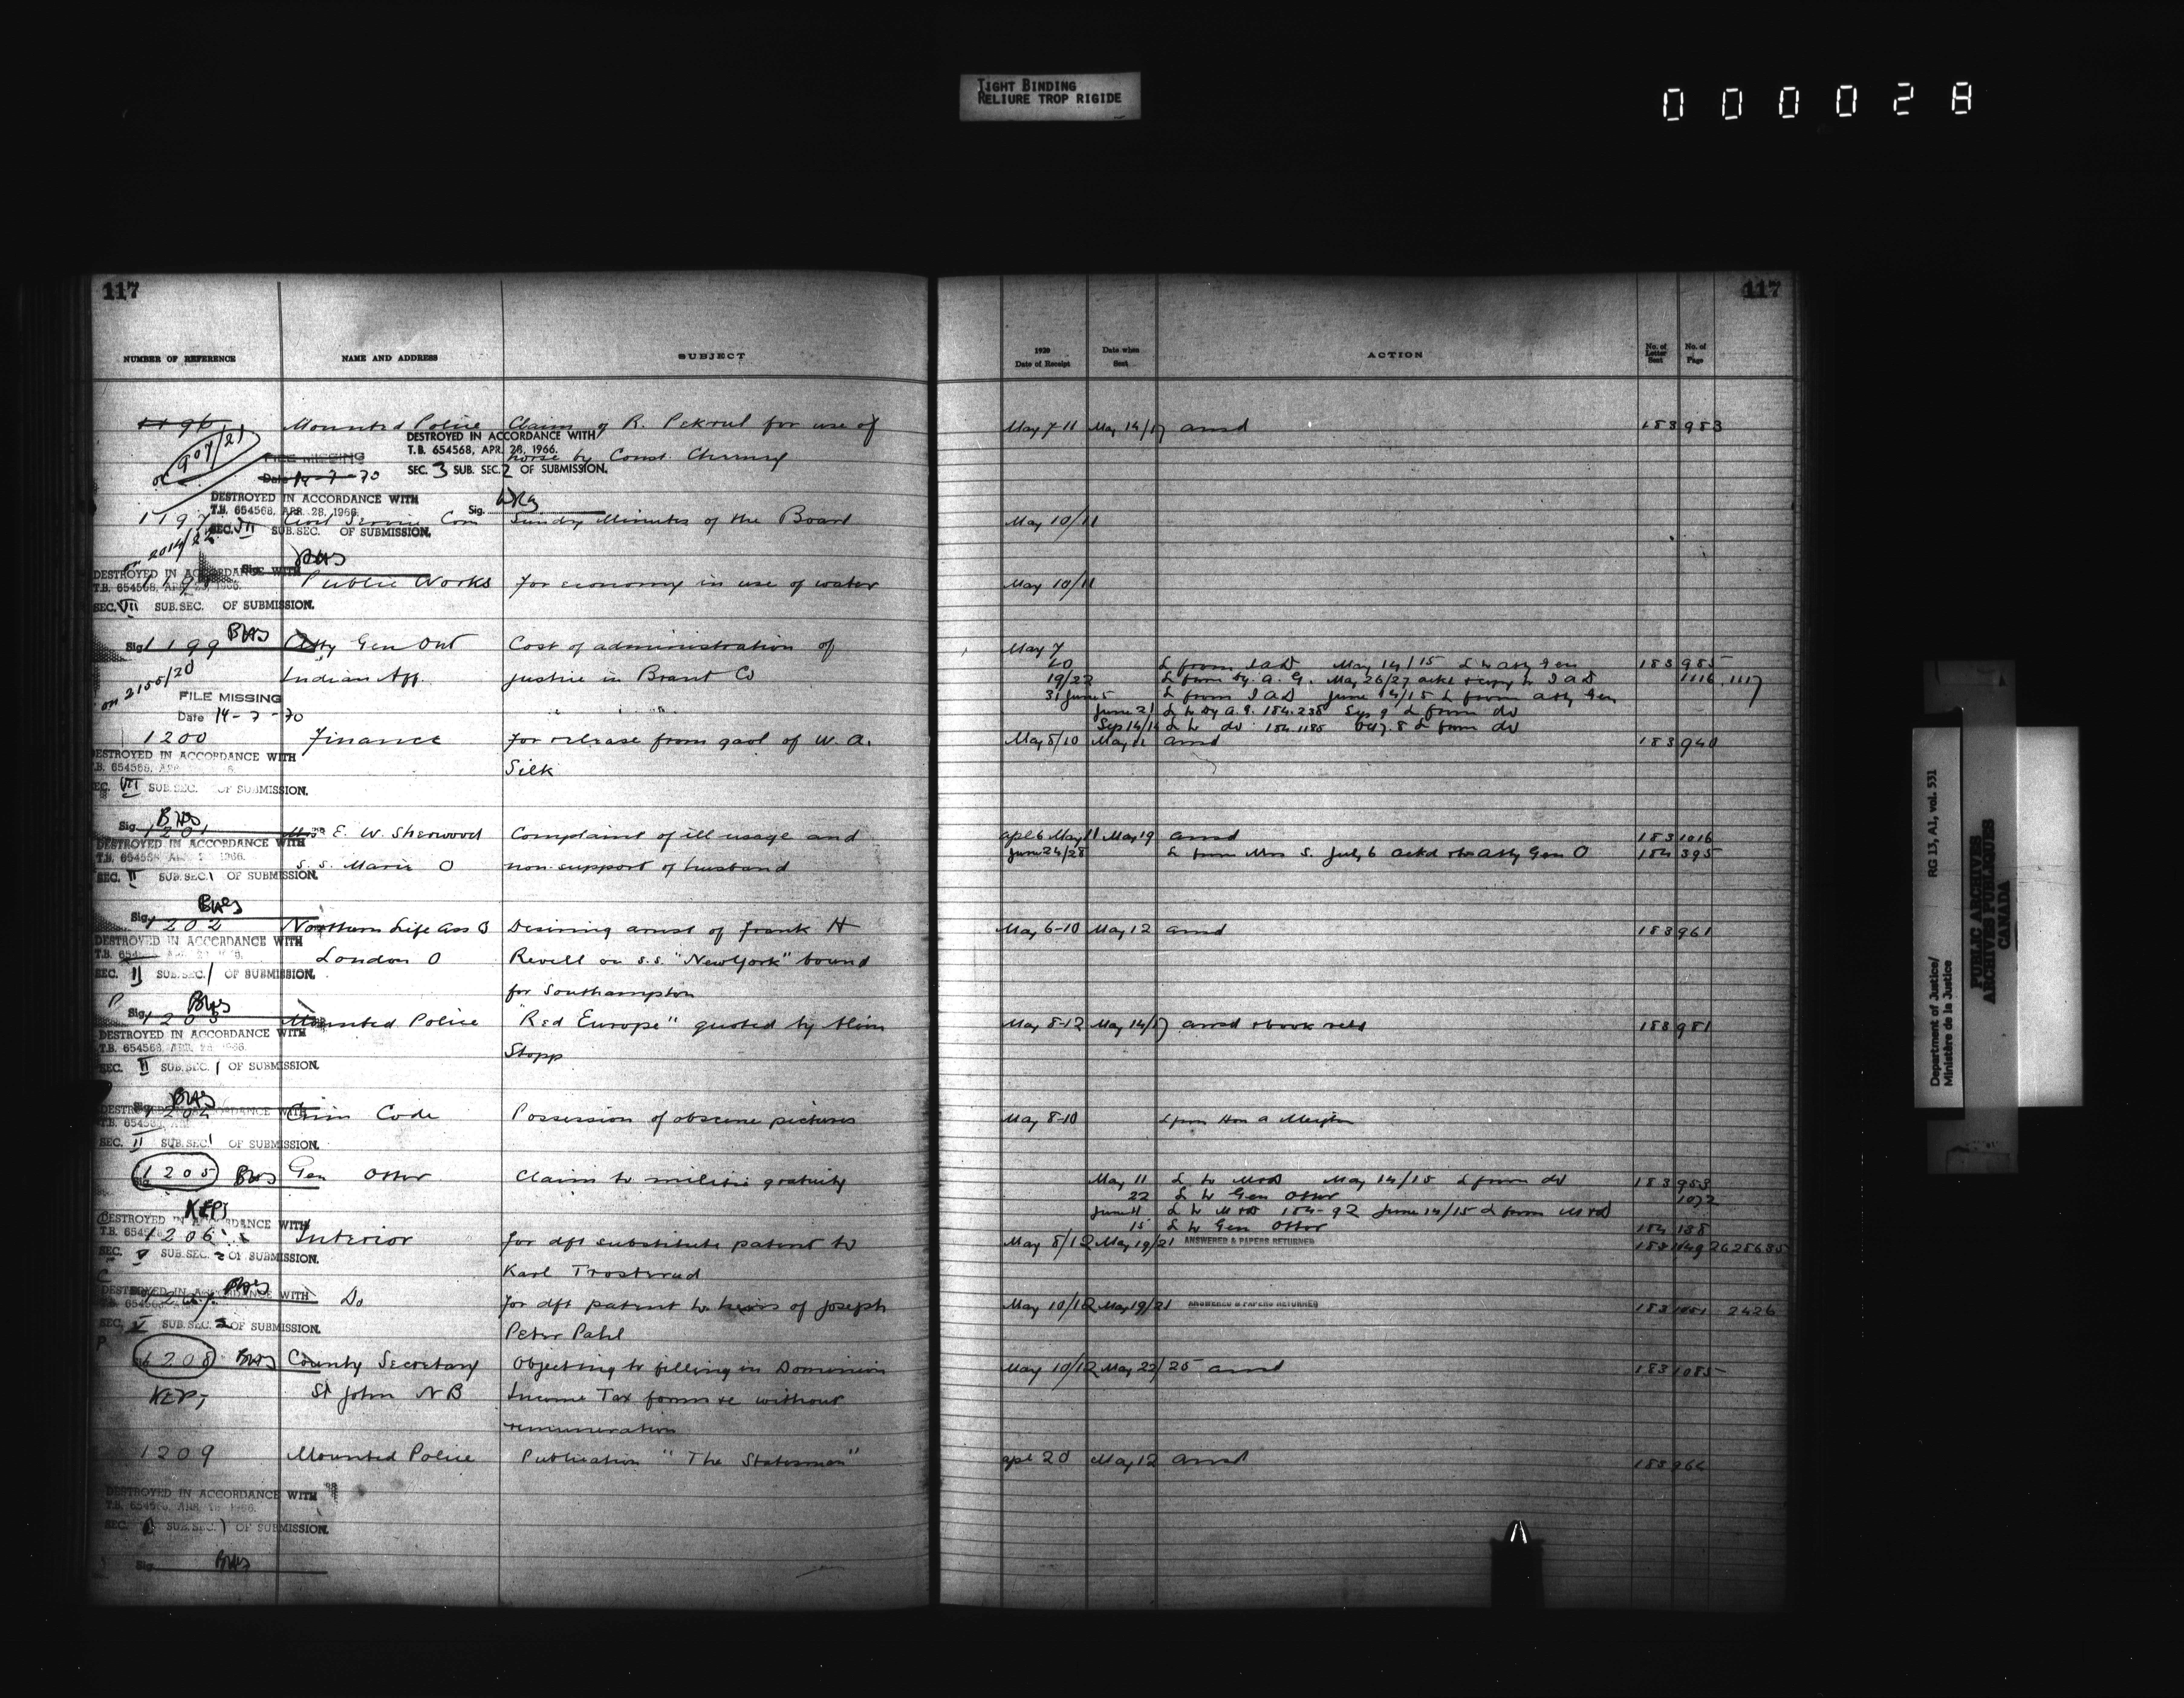 TIGHT BINDING
RELIURE TROP RIGIDE
000028
117
NUMBER OF REFERENCE NAME AND ADDRESS SUBJECT
1196 Mounted Police Claim of R. Pekrul for use of
907/21 DESTROYED IN ACCORDANCE WITH
T.B. 654568, APR. 28, 1966.
FILE MISSING horse by Const.
SEC. 3 SUB. SEC. 2 OF SUBMISSION.
Date 14-7-70
DESTROYED IN ACCORDANCE WITH
T.B. 654568, APR. 28, 1966. Sig.
1197 Civil Service Com Sundry Minutes of the Board
SEC. VII SUB.SEC. OF SUBMISSION.
on 2014/22
DESTROYED IN ACCORDANCE WITH
Public Works For economy in use of water
T.B. 654568,
SEC. VII SUB.SEC. OF SUBMISSION.
Sig. 1199 Atty Gen Ont Cost of administration of
on 2155/20 Indian Aff. justice in Brant Co
FILE MISSING
Date 14-7-70
1200 Finance For release from gaol of W. A.
DESTROYED IN ACCORDANCE WITH
T.B. 654568, Silk
SEC. VII SUB.SEC. OF SUBMISSION.
Sig. 1201 Mrs E. W. Sherwood Complaint of ill usage and
DESTROYED IN ACCORDANCE WITH
T.B. 654568 1966. S. S. Marie O non support of husband
SEC. II SUB.SEC. 1 OF SUBMISSION.
Sig. 1202 Northern Life Ass Desiring arrest of Frank H
DESTROYED IN ACCORDANCE WITH
London O Revell on s.s. "New York" bound
SEC. II SUB.SEC. 1 OF SUBMISSION.
for Southampton
Sig. 1203 Mounted Police "Red Europe" quoted by Alvin
DESTROYED IN ACCORDANCE WITH
T.B. 654568, APR. 28 1966. Stopp
SEC. II SUB.SEC. 1 OF SUBMISSION.
1204 Crim Code Possession of obscene pictures
DESTROYED IN ACCORDANCE WITH
T.B. 654568
SEC. II SUB.SEC. 1 OF SUBMISSION.
1205 Gen Otter Claim to militia gratuity
KEPT
DESTROYED IN ACCORDANCE WITH
1206 Interior for dft substitute patent to
SEC. V SUB.SEC. 2 OF SUBMISSION.
Karl Trosterud
DESTROYED IN ACCORDANCE WITH
1207 Do for dft patent to heirs of Joseph
SEC. V SUB.SEC. 2 OF SUBMISSION.
Peter Pahl
1208 County Secretary Objecting to filling in Dominion
KEPT St John NB Income Tax forms without
remuneration
1209 Mounted Police Publication "The Statesman"
DESTROYED IN ACCORDANCE WITH
SEC. SUB.SEC. 1 OF SUBMISSION.
Sig.
117
1920 Date of Receipt Date when Sent ACTION No. of Letter Sent No. of Page
May 7-11 May 14/17 ansd 183 983
May 10/11
May 10/11
May 7
20 L from IAD May 14/15 L to Atty Gen 183 985
19/22 L from Dy. A. G. May 26/27 ackd & copy to IAD 1116.1117
31 June 5 L from IAD June 14/15 L from Atty Gen
June 21 L to Dy A.G. 184.238 Sep 9 L from do
Sep 14/14 L to do 184.1186 L from do
May 8/10 May 11 ansd 183 940
Apl 6 May 11 May 19 ansd 183 1016
June 24/28 L from Mrs S. July 6 ackd Atty Gen O 184 395
May 6-10 May 12 ansd 183 961
May 8-12 May 14/17 ansd & book retd 183 981
May 8-10 L from Hon A Meighen
May 11 L to M&D May 14/15 L from do 183 953
22 L to Gen Otter 1072
June 11 L to M&D 184-92 June 14/15 L from M&D
15 L to Gen Otter 184 138
May 8/12 May 19/21 ANSWERED & PAPERS RETURNED
May 10/12 May 19/21 ANSWERED & PAPERS RETURNED 183 1051 2426
May 10/12 May 22/25 ansd 183 1085
Apl 20 May 12 ansd 183 964
Department of Justice/
Ministère de la Justice
RG 13, A1, vol. 531
PUBLIC ARCHIVES
ARCHIVES PUBLIQUES
CANADA